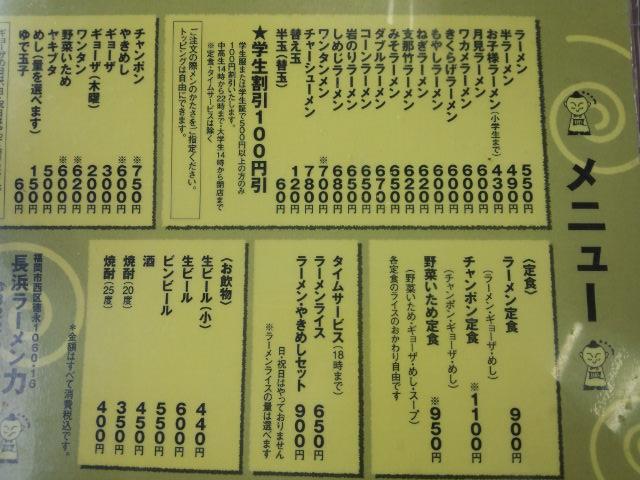 メニュー
ラーメン 550円
半ラーメン 490円
お子様ラーメン(小学生まで) 430円
月見ラーメン 600円
ワカメラーメン 600円
きくらげラーメン 600円
もやしラーメン 600円
ねぎラーメン 620円
支那竹ラーメン 620円
みそラーメン 650円
ダブルラーメン 670円
コーンラーメン 650円
岩のりラーメン 650円
しめじラーメン 680円
ワンタンメン ※700円
チャーシューメン 780円
替え玉 120円
半玉(替玉) 60円
★学生割引100円引
学生服または学生証で500円以上の方のみ
100円割引いたします。
中高生14時から22時まで・大学生14時から閉店まで
※定食・タイムサービスは除く
ご注文の際メンのかたさをご指定ください。
トッピングは自由にできます。
チャンポン ※750円
やきめし ※600円
ギョーザ 300円
ギョーザ(木曜) 200円
ワンタン ※620円
野菜いため ※600円
ヤキブタ 500円
めし(量を選べます) 150円
ゆで玉子 60円
〈定食〉
ラーメン定食 900円
(ラーメン・ギョーザ・めし)
チャンポン定食 ※1100円
(チャンポン・ギョーザ・めし)
野菜いため定食 ※950円
(野菜いため・ギョーザ・めし・スープ)
各定食のライスのおかわり自由です
タイムサービス(18時まで)
ラーメンライス 650円
ラーメン・やきめしセット 900円
日・祝日はやっておりません
※ラーメンライスの量は選べます
〈お飲物〉
生ビール(小) 440円
生ビール 600円
ビンビール 550円
酒 450円
焼酎(20度) 350円
焼酎(25度) 400円
*金額はすべて消費税込です。
福岡市西区徳永1060-16
長浜ラーメン力